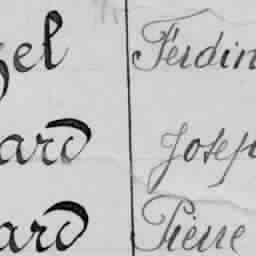 el Ferdin
ard Josep
ard Pierre